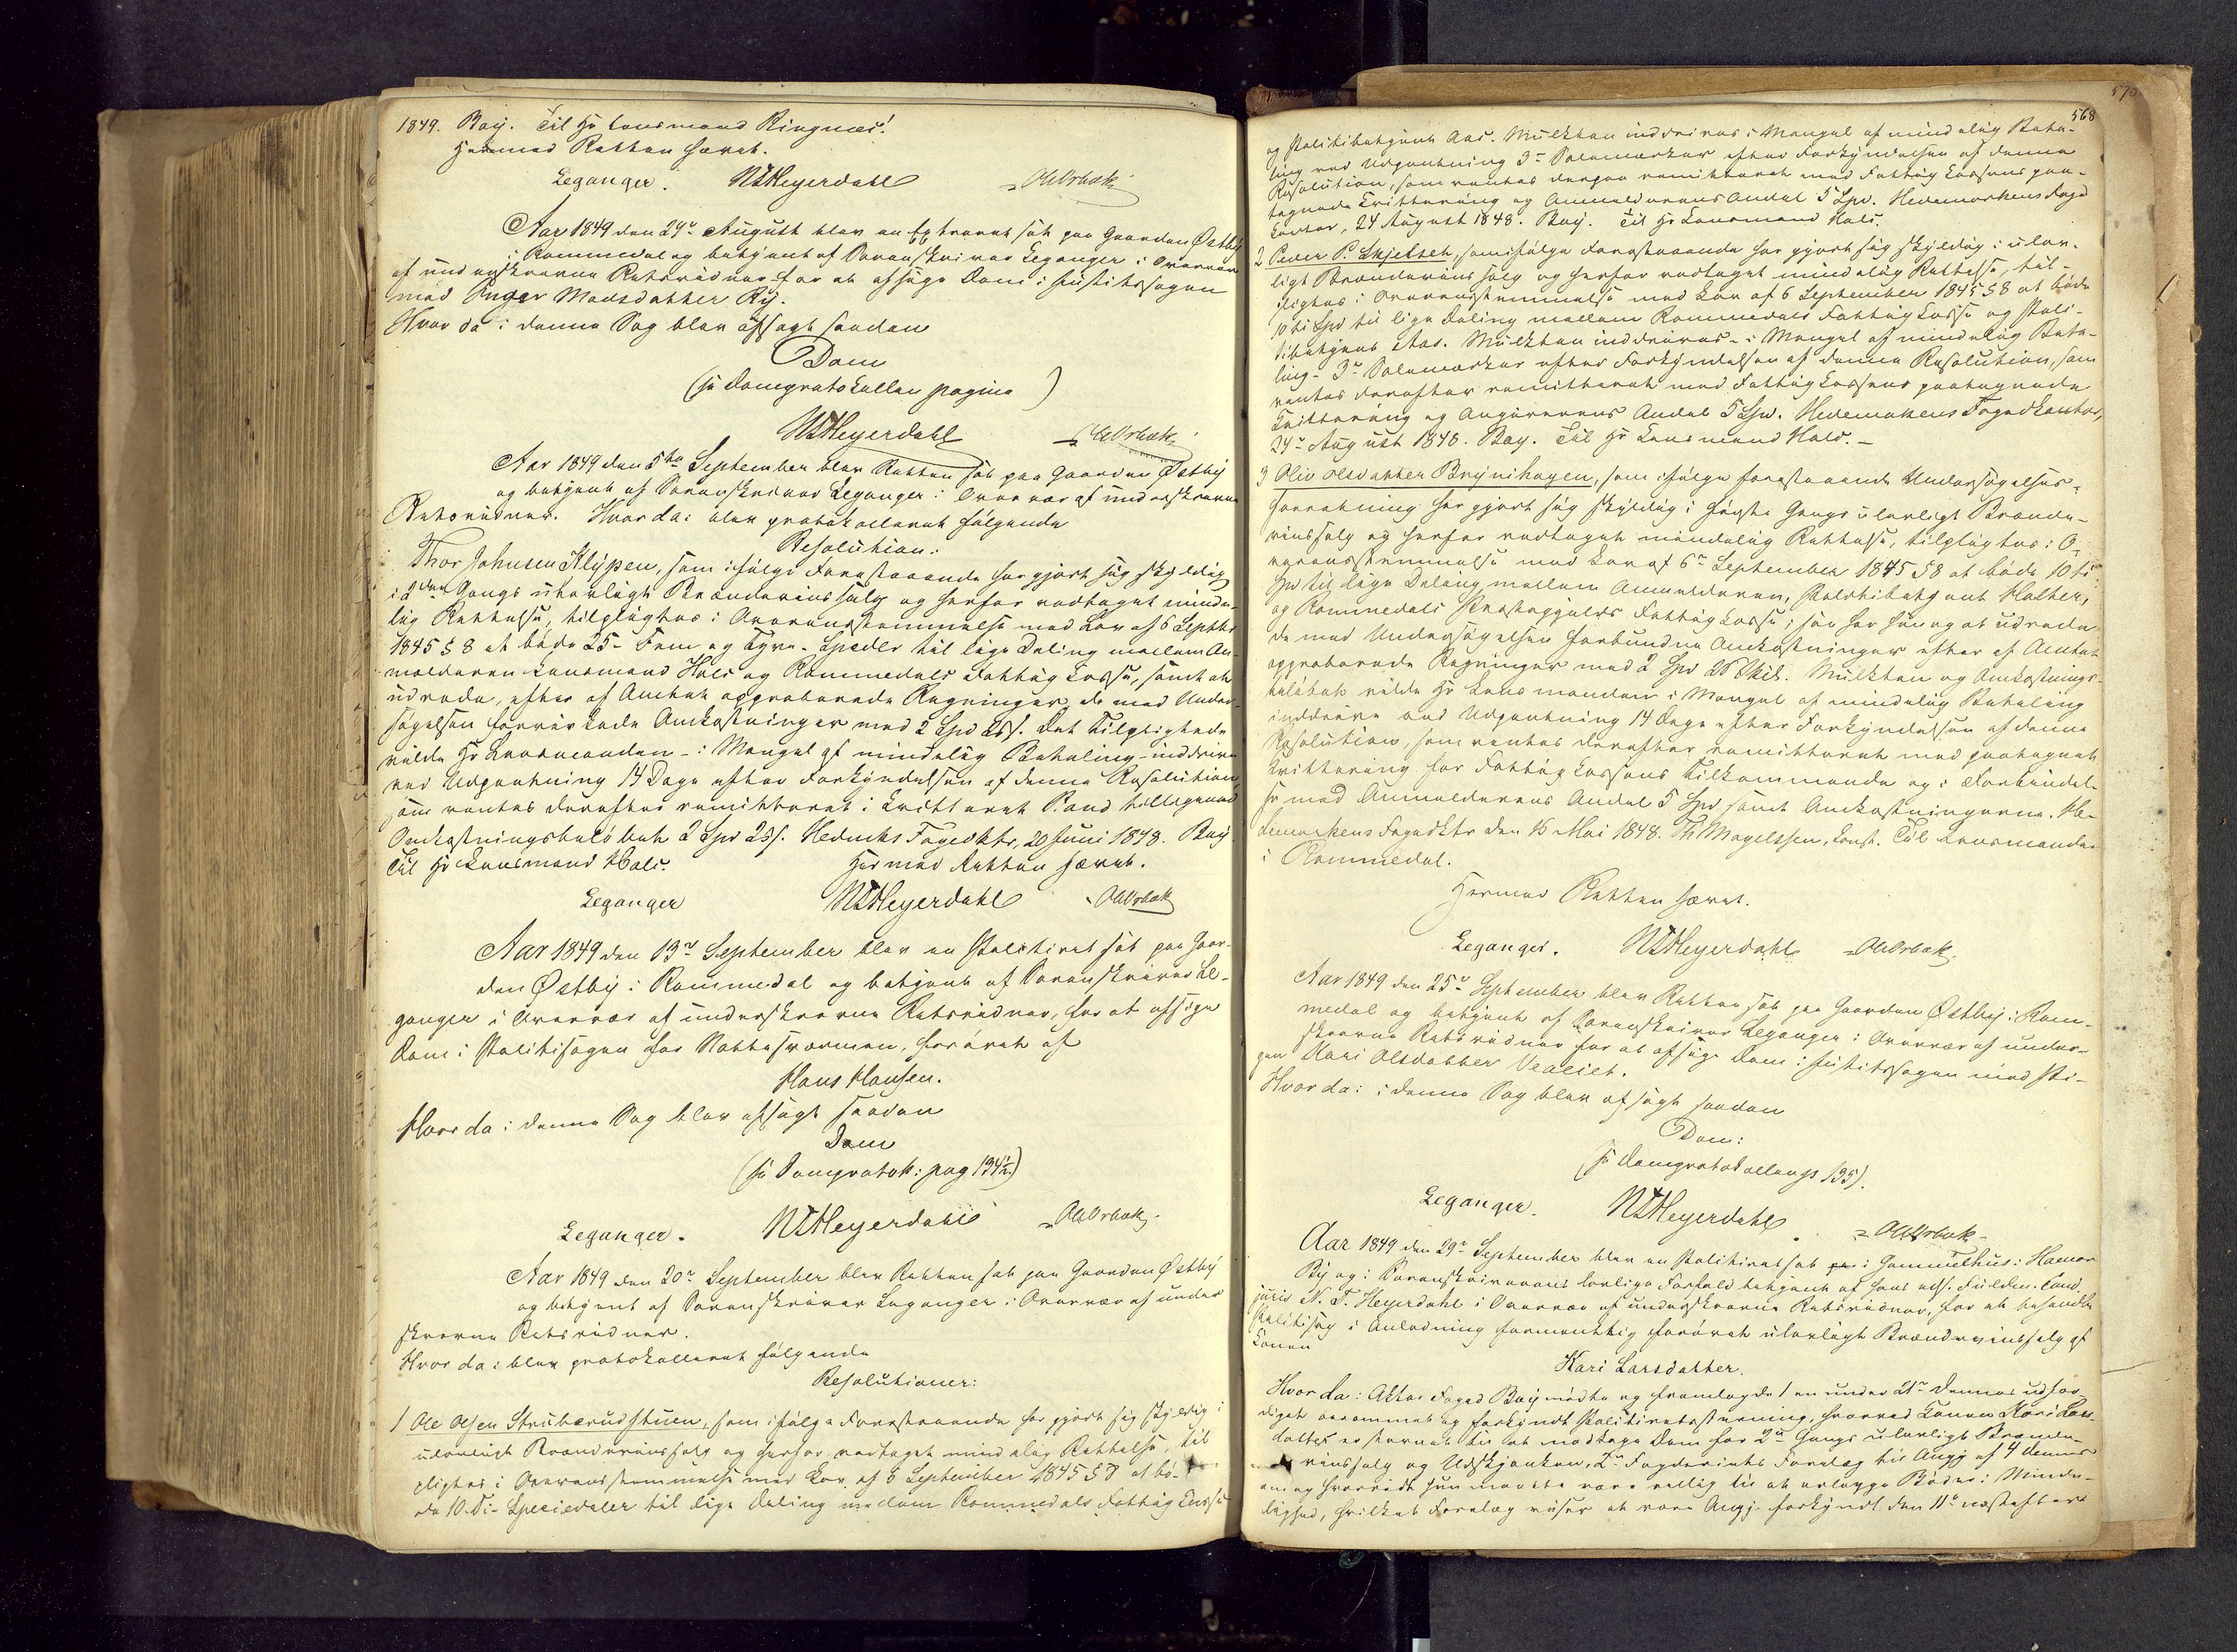 1849. Bay. Til Hr Lensmand Ringnæs!
Hermed Retten hævet.
Leganger. NTHeyerdahl
Aar 1849 den 29de August blev en Extraret sat paa Gaarden Østby
i Rommedal og betjent af Sorenskriver Leganger i Overvær
af underskrevne Retsvidner for at afsige Dom i Justitssagen
mod Inger Madsdatter Ry.
Hvor da: i denne Sag blev afsagt saadan
Dom
(se Domsprotokollen pagina )
NTHeyerdahl
Aar 1849 den 5te September blev Retten sat paa Gaarden Østby
og betjent af Sorenskriver Leganger i Overvær af underskrevne
Retsvidner. Hvor da: blev protokolleret følgende
Resolution:
Thor Johnsen Klypen, som ifølge Forestaaende har gjort sig skyldig
i 2den Gangs ulovligt Brændeviinssalg og herfor vedtaget minde-
lig Rettelse, tilpligtes i Overensstemmelse med Lov af 6 Septbr
1845 § 8 at bøde 25 - Fem og Tyve - Spedlr til lige Deling mellem An-
melderen Lensmand Hols og Rommedals Fattigkasse, samt at
udrede, efter af Amtet approberede Regninger, de med Under-
søgelsen forvirkede Omkostninger med 2 Spd 25 s. Det Tilpligtede
vilde Hr Lensmanden - i Mangel af mindelig Betaling - inddrive
ved Udpantning 14 Dage efter Forkyndelsen af denne Resolution
som ventes derefter remitteret i qvitteret Stand tilligemed
Omkostningsbeløbet 2 Spd 25 s. Hedmks Fogedktr, 20 Juni 1848. Bay
Til Hr Lensmand Hols. Hermed Retten hævet.
Leganger NTHeyerdahl
Aar 1849 den 13de September blev en Politiret sat paa Gaar-
den Østby i Rommedal og betjent af Sorenskriver Le-
ganger i Overvær af underskrevne Retsvidner, for at afsige
Dom i Politisagen for Nattesværmen, forøvet af
Hans Hansen.
Hvor da: i denne Sag blev afsagt saadan
Dom
(se Domprotok: pag 134½)
Leganger. NTHeyerdahl
Aar 1849 den 20de September blev Retten sat paa Gaarden Østby
og betjent af Sorenskriver Leganger i Overvær af under
skrevne Retsvidner.
Hvor da: blev protokolleret følgende
Resolutioner:
1 Ole Olsen Struberudstuen, som ifølge Forestaaende har gjort sig skyldig i
ulovligt Brændeviinssalg og herfor vedtaget mindelig Rettelse, til
pligtes i Overensstemmelse med Lov af 6 September 1845 § 8 at bø-
de 10 - Ti - Speciedaler til lige Deling mellem Rommedals Fattigkasse
570
568
og Politibetjent Aas. Mulkten inddrives i Mangel af mindelig Beta-
ling ved Udpantning 3de Solemærker efter Forkyndelsen af denne
Resolution, som ventes derpaa remitteret med Fattigkassens paa-
tegnede Qvittering og Anmelderens Andel 5 Spd. Hedemarkens Foged
kontor, 24 August 1848. Bay. Til Hr Lensmand Hols.
2 Peder P. Skjelset, som ifølge Forestaaende har gjort sig skyldig i ulov-
ligt Brændeviinssalg og herfor vedtaget mindelig Rettelse, til-
pligtes i Overensstemmelse med Lov af 6 September 1845 § 8 at bøde
10 ti Spd til lige Deling mellem Rommedals Fattigkasse og Poli-
tibetjent Aas. Mulkten inddrives - i Mangel af mindelig Beta-
ling - 3de Solemærker efter Forkyndelsen af denne Resolution, som
ventes derefter remitteret med Fattigkassens paategnede
Qvittering og Angiverens Andel 5 Spd. Hedemakens Fogedkontor,
24de August 1848. Bay. Til Hr Lensmand Hols. -
3 Oliv Olsdatter Brynihagen, som ifølge forestaaende Undersøgelses-
Forretning har gjort sig skyldig i første Gangs ulovligt Brænde-
viinssalg og herfor vedtaget mindelig Rettelse, tilpligtes i O-
verensstemmelse med Lov af 6te September 1845 § 8 at bøde 10 ti
Spd til lige Deling mellem Anmelderen, Politibetjent Holther,
og Rommedals Præstegjelds Fattigkasse; saa har hun og at udrede
de med Undersøgelsen forbundne Omkostninger efter af Amtet
approberede Regninger med 2 Spd 26 Skil. Mulkten og Omkostnings-
beløbet vilde Hr Lensmanden i Mangel af mindelig Betaling
inddrive ved Udpantning 14 Dage efter Forkyndelsen af denne
Resolution, som ventes derefter remitteret med paategnet
Qvittering for Fattigkassens Tilkommende og i Forbindel-
se med Anmelderens Andel 5 Spd samt Omkostningerne. He-
demarkens Fogedktr den 16 Mai 1848. Th Magelssen, const. Til Lensmanden
i Rommedal.
Hermed Retten hævet.
Leganger. NTHeyerdahl
Aar 1849 den 25de September blev Retten sat paa Gaarden Østby i Rom-
medal og betjent af Sorenskriver Leganger i Overvær af under-
skrevne Retsvidner for at afsige Dom i Justitssagen mod Pi-
gen Kari Olsdatter Vealiet.
Hvor da: i denne Sag blev afsagt saadan
Dom:
(se Domsprotokollen p 135).
Leganger. NTHeyerdahl
Aar 1849 den 29de September blev en Politiret sat i Gammelhus i Hamar
By og i Sorenskriverens lovlige Forfald betjent af hans edsv. Fuldm. Cand.
juris N. T. Heyerdahl i Overvær af underskrevne Retsvidner, for at behandle
Politisag i Anledning formentlig forøvet ulovligt Brændeviinssalg af
Konen
Kari Larsdatter.
Hvor da: Aktor Foged Bay mødte og fremlagde 1 en under 21de Dennes udfær-
diget beramme og forkyndt Politiretsstevning, hvorved Konen Kari Lars-
datter er stevnet til at modtage Dom for 2den Gangs ulovligt Brænde-
viinssalg og Udskjenken, 2de Fogderiets Forelæg til Angj. af 4 dennes
om og hvorvidt hun maatte være villig til at erlægge Bøder i Minde-
lighed, hvilket Forelæg viser at være Angj. forkyndt den 11te næstefter